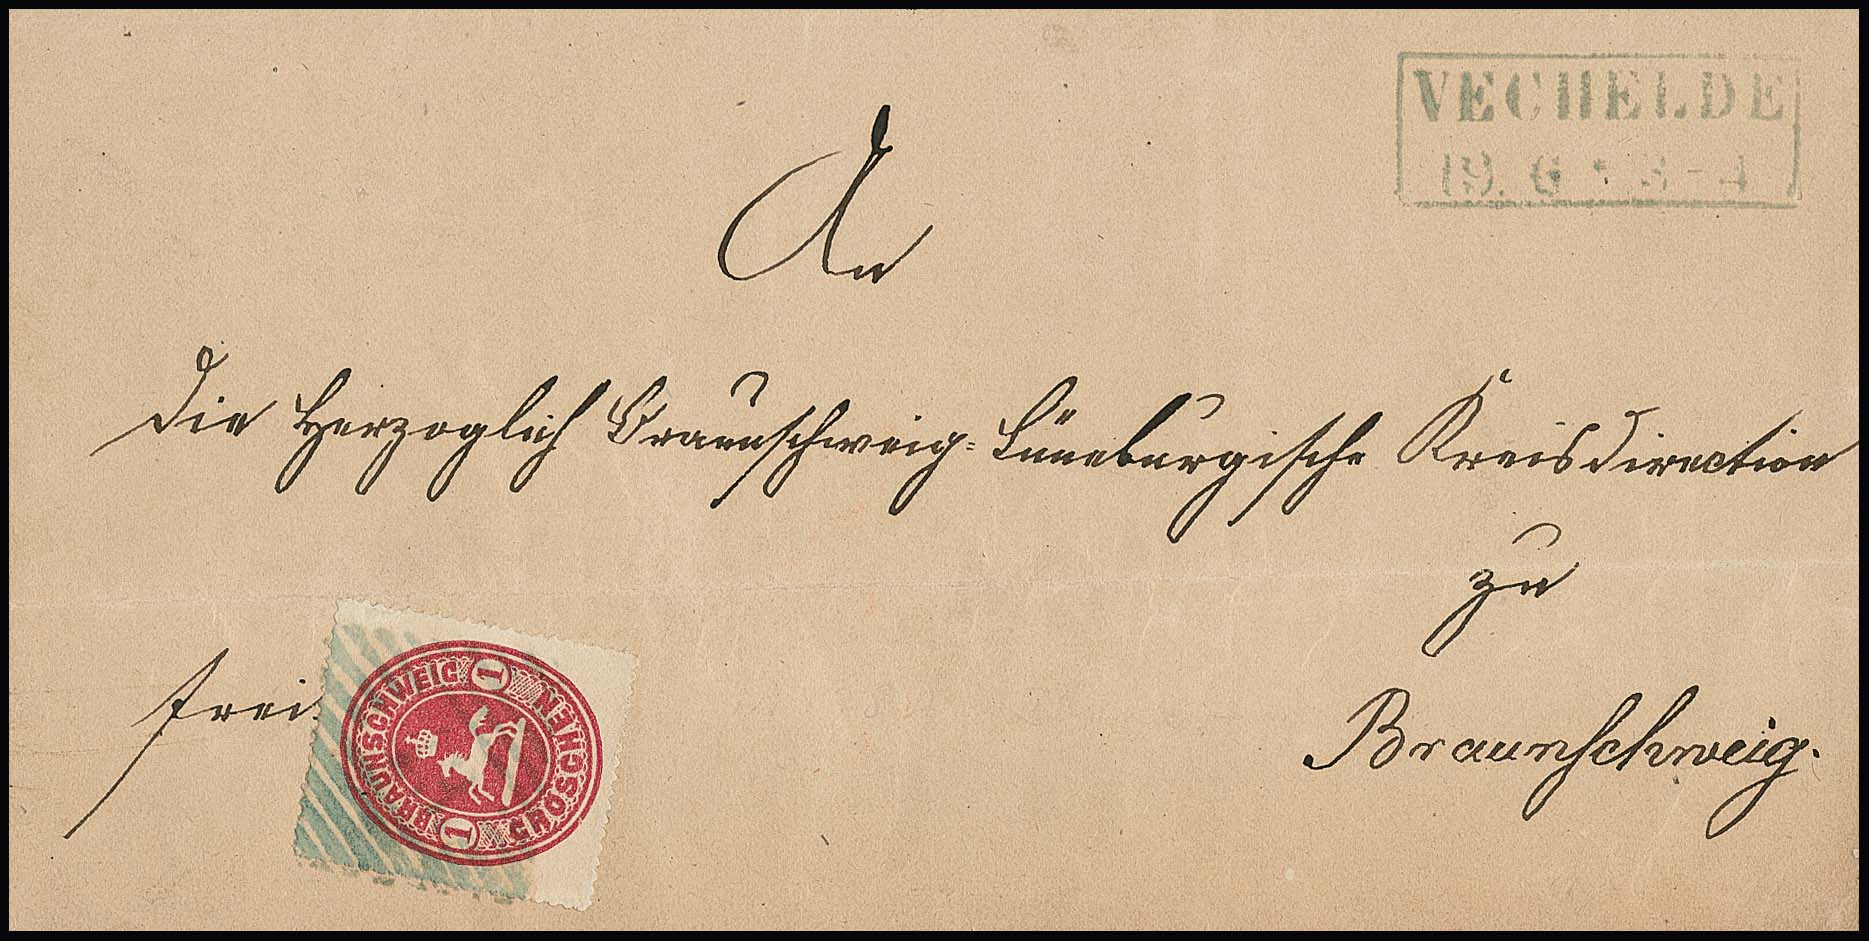 VECHELDE
19. 6 * 3-4
An
die Herzoglich Braunschweig-Lüneburgische Kreisdirection
zu
Braunschweig.
frei.
BRAUNSCHWEIG 1 NEUGROSCHEN 1